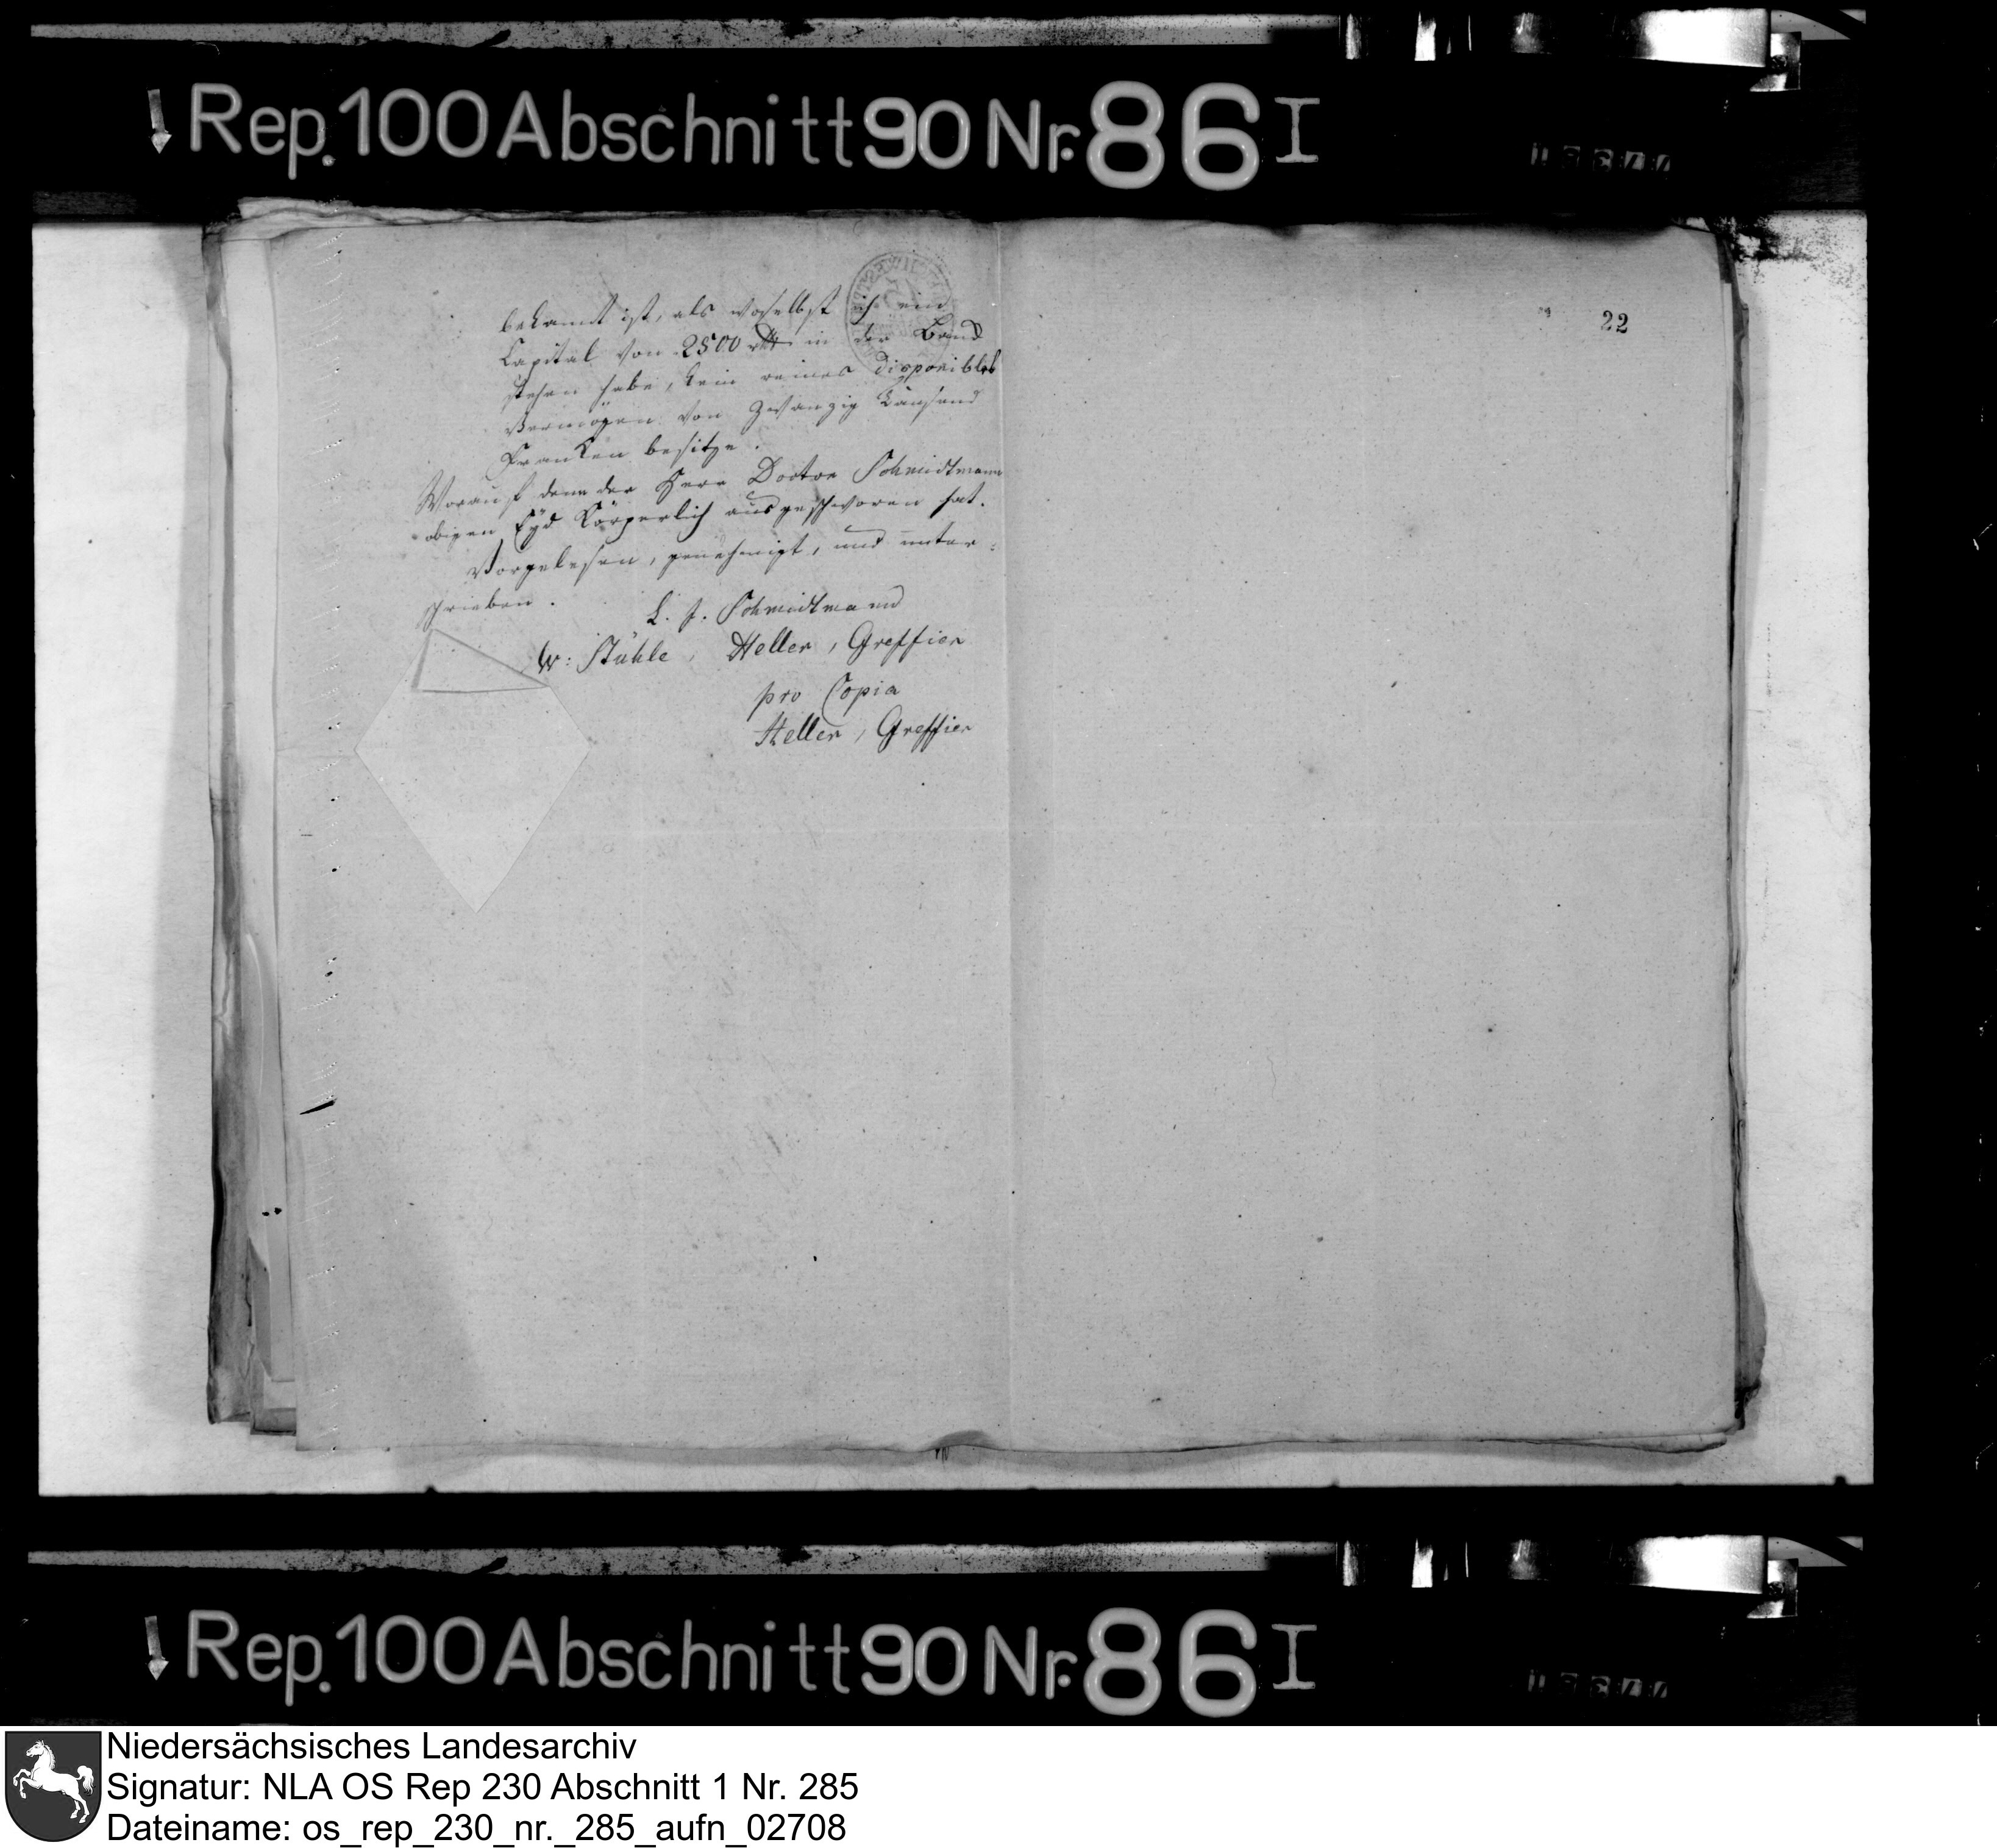 Rep. 100 Abschnitt 90 Nr. 86 I
bekannt ist, als woselbst ich ein
Capital von 2500 rthl in der Band
stehen habe, kein reines disponibles
Vermögen von Zwanzig Tausend
Franken besitze.
Worauf denn der Herr Doctor Schmidtmann
obigen Eyd Körperlich ausgeschworen hat.
Vorgelesen, genehmigt, und unter-
schrieben.
L. J. Schmidtmann
W: Stühle, Heller, Greffier
pro Copia
Heller, Greffier
22
Rep. 100 Abschnitt 90 Nr. 86 I
Niedersächsisches Landesarchiv
Signatur: NLA OS Rep 230 Abschnitt 1 Nr. 285
Dateiname: os_rep_230_nr._285_aufn_02708